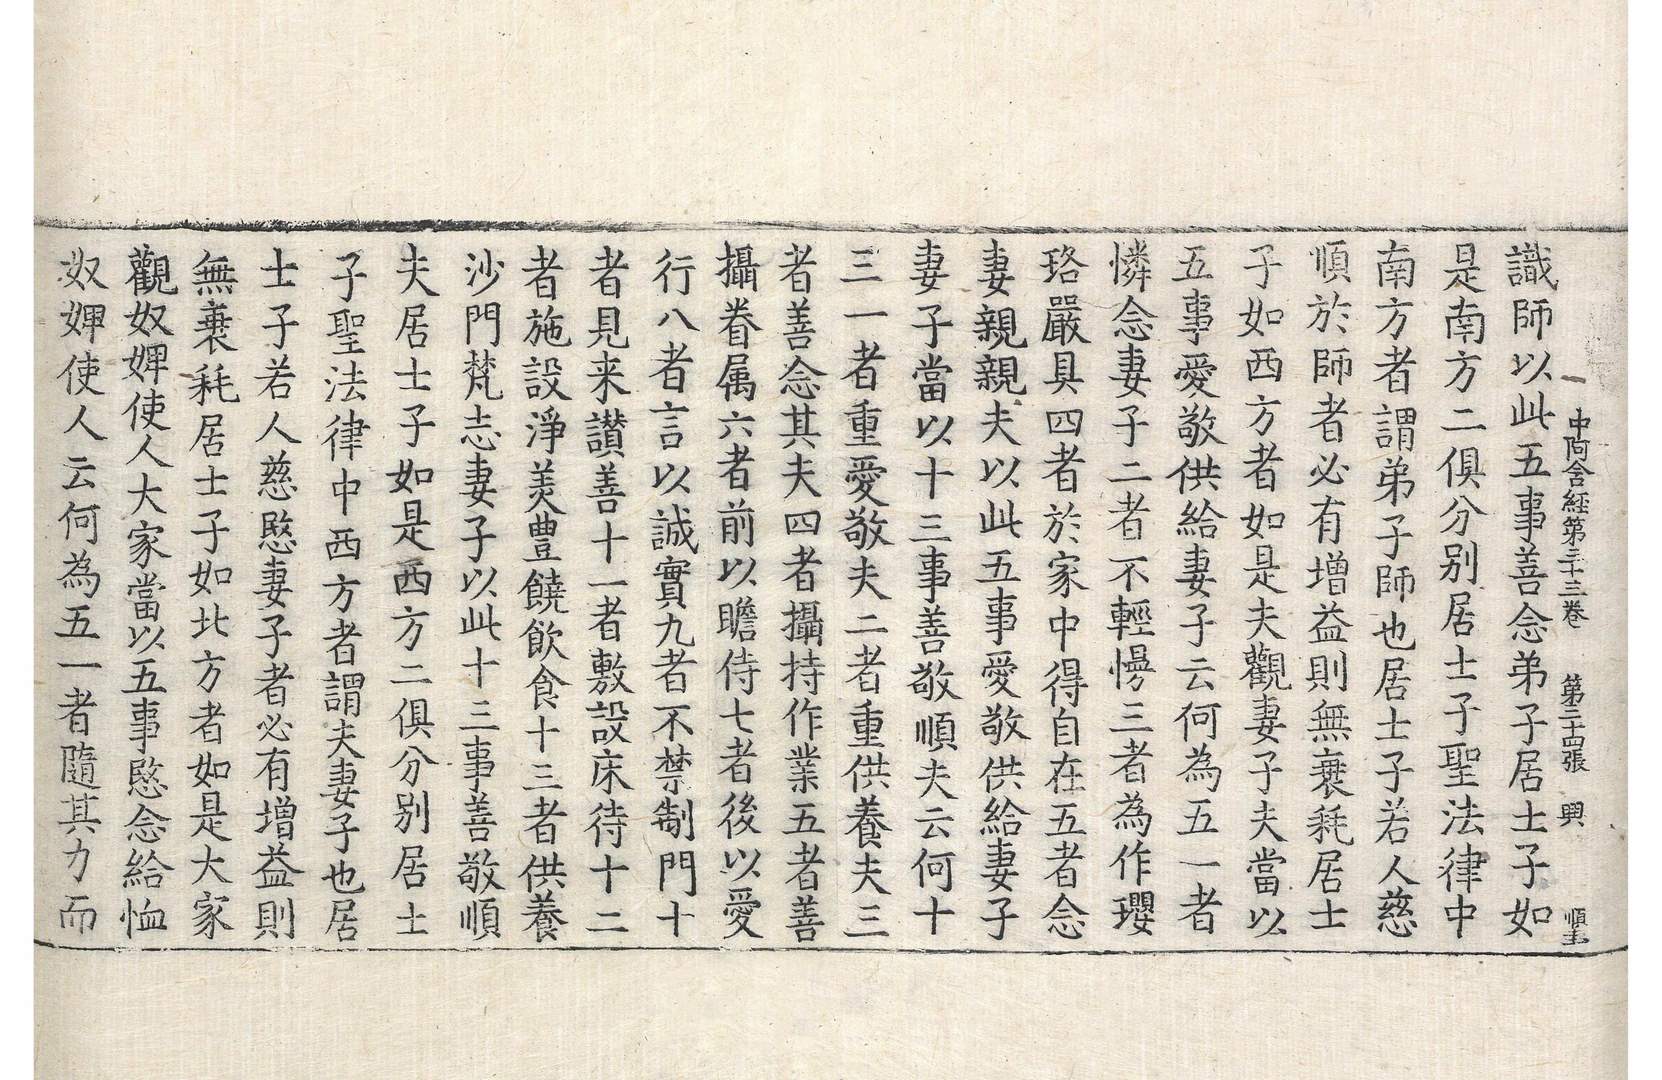 中阿含經第三十三卷　第二十四張　興　順生
識師以此五事善念弟子居士子如
是南方二俱分别居士子聖法律中
南方者謂弟子師也居士子若人慈
順於師者必有增益則無衰耗居士
子如西方者如是夫觀妻子夫當以
五事愛敬供給妻子云何為五一者
憐念妻子二者不輕慢三者為作瓔
珞嚴具四者於家中得自在五者念
妻親親夫以此五事愛敬供給妻子
妻子當以十三事善敬順夫云何十
三一者重愛敬夫二者重供養夫三
者善念其夫四者攝持作業五者善
攝眷属六者前以瞻侍七者後以愛
行八者言以誠實九者不禁制門十
者見来讃善十一者敷設床待十二
者施設淨羙豊饒飲食十三者供養
沙門梵志妻子以此十三事善敬順
夫居士子如是西方二俱分别居士
子聖法律中西方者謂夫妻子也居
士子若人慈愍妻子者必有增益則
無衰耗居士子如北方者如是大家
觀奴婢使人大家當以五事愍念給恤
奴婢使人云何為五一者隨其力而